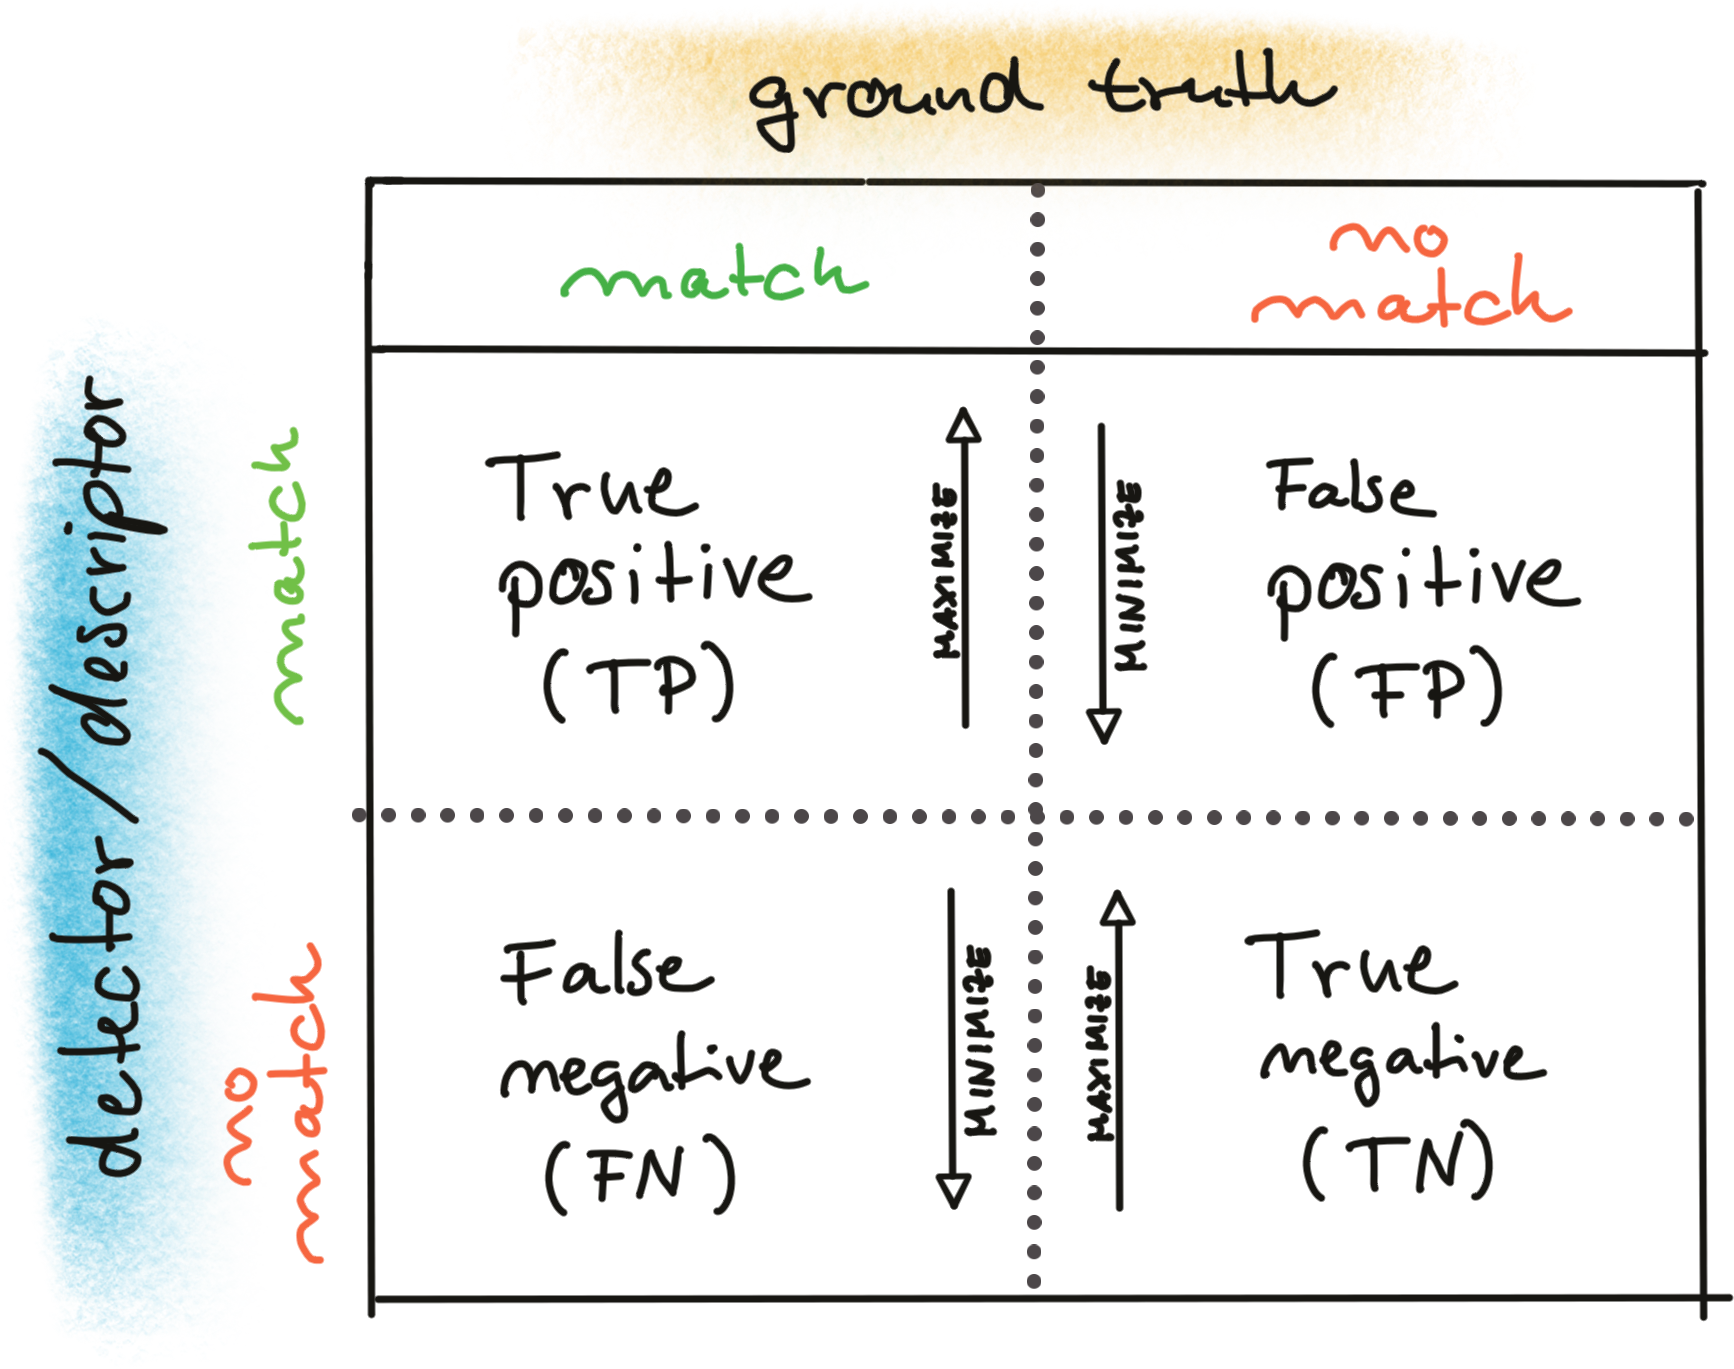 ground truth
match
no
match
detector/descriptor
match
True
positive
(TP)
MAXIMIZE
MINIMIZE
False
positive
(FP)
no
match
False
negative
(FN)
MINIMIZE
MAXIMIZE
True
negative
(TN)